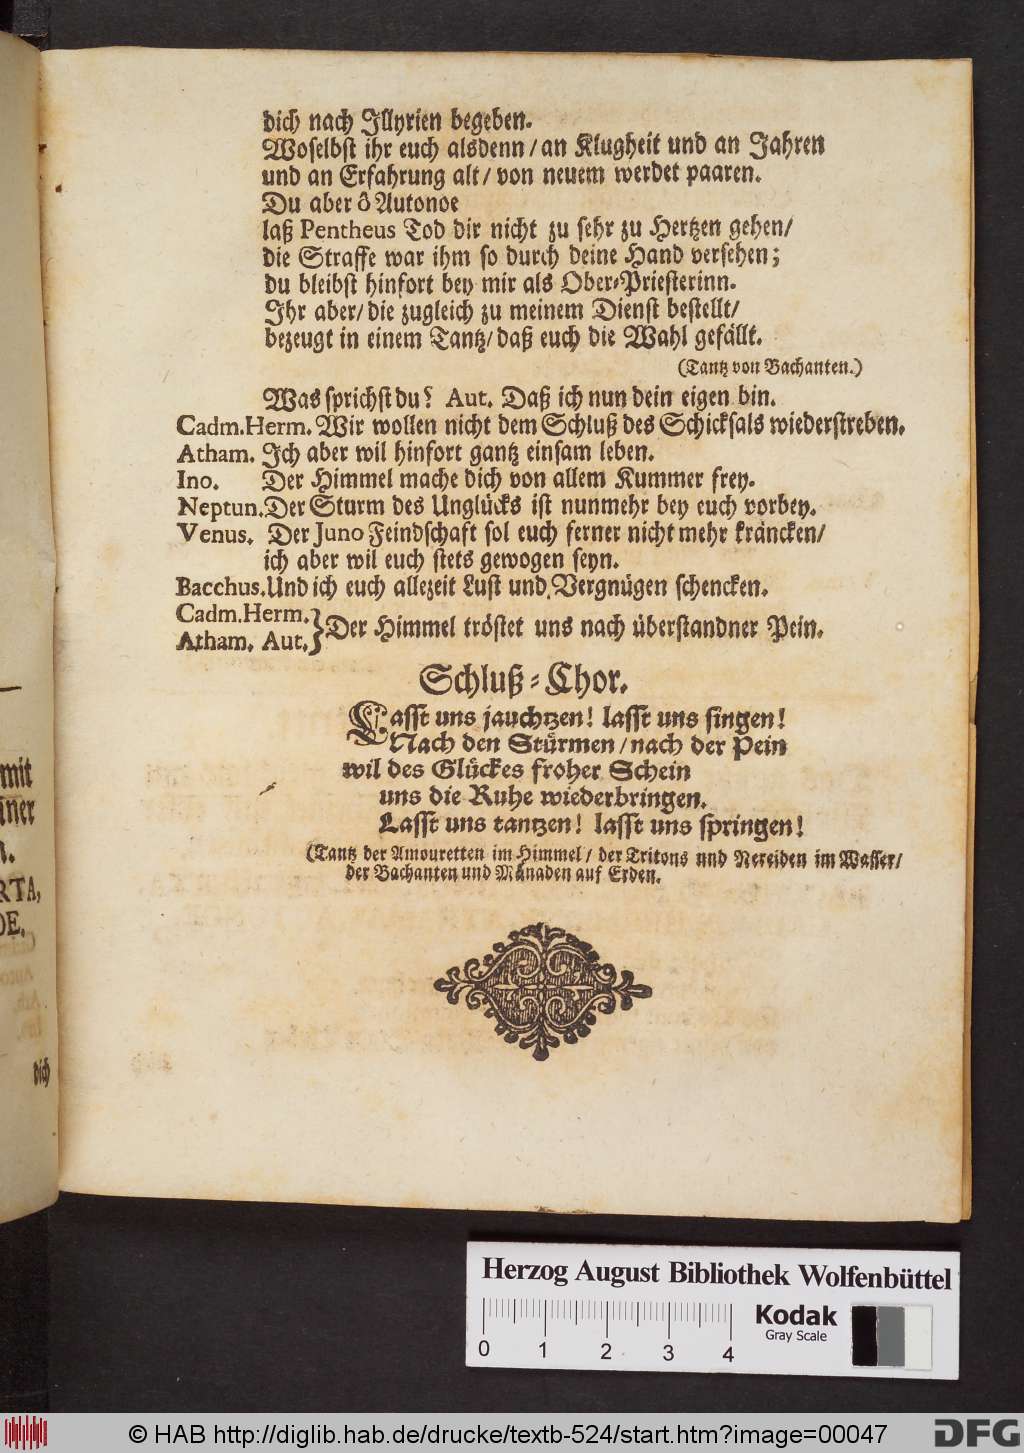 dich nach Illyrien begeben.
Woselbst ihr euch alsdenn / an Klugheit und an Jahren
und an Erfahrung alt / von neuem werdet paaren.
Du aber ô Autonoe
laß Pentheus Tod dir nicht zu sehr zu Hertzen gehen /
die Straffe war ihm so durch deine Hand versehen;
du bleibst hinfort bey mir als Ober-Priesterinn.
Ihr aber / die zugleich zu meinem Dienst bestellt /
bezeugt in einem Tantz / daß euch die Wahl gefällt.
(Tantz von Bachanten.)
Was sprichst du? Aut. Daß ich nun dein eigen bin.
Cadm. Herm. Wir wollen nicht dem Schluß des Schicksals wiederstreben.
Atham. Ich aber wil hinfort gantz einsam leben.
Ino. Der Himmel mache dich von allem Kummer frey.
Neptun. Der Sturm des Unglücks ist nunmehr bey euch vorbey.
Venus. Der Juno Feindschaft sol euch ferner nicht mehr kräncken /
ich aber wil euch stets gewogen seyn.
Bacchus. Und ich euch allezeit Lust und Vergnügen schencken.
Cadm. Herm.
Atham. Aut. } Der Himmel tröstet uns nach überstandner Pein.
Schluß-Chor.
Lasst uns jauchtzen! lasst uns singen!
Nach den Stürmen / nach der Pein
wil des Glückes froher Schein
uns die Ruhe wiederbringen.
Lasst uns tantzen! lasst uns springen!
(Tantz der Amouretten im Himmel / der Tritons und Nereiden im Wasser /
der Bachanten und Mänaden auf Erden.
mit
iner
RTA,
DE.
dich
Herzog August Bibliothek Wolfenbüttel
Kodak
Gray Scale
0 1 2 3 4
© HAB http://diglib.hab.de/drucke/textb-524/start.htm?image=00047
DFG